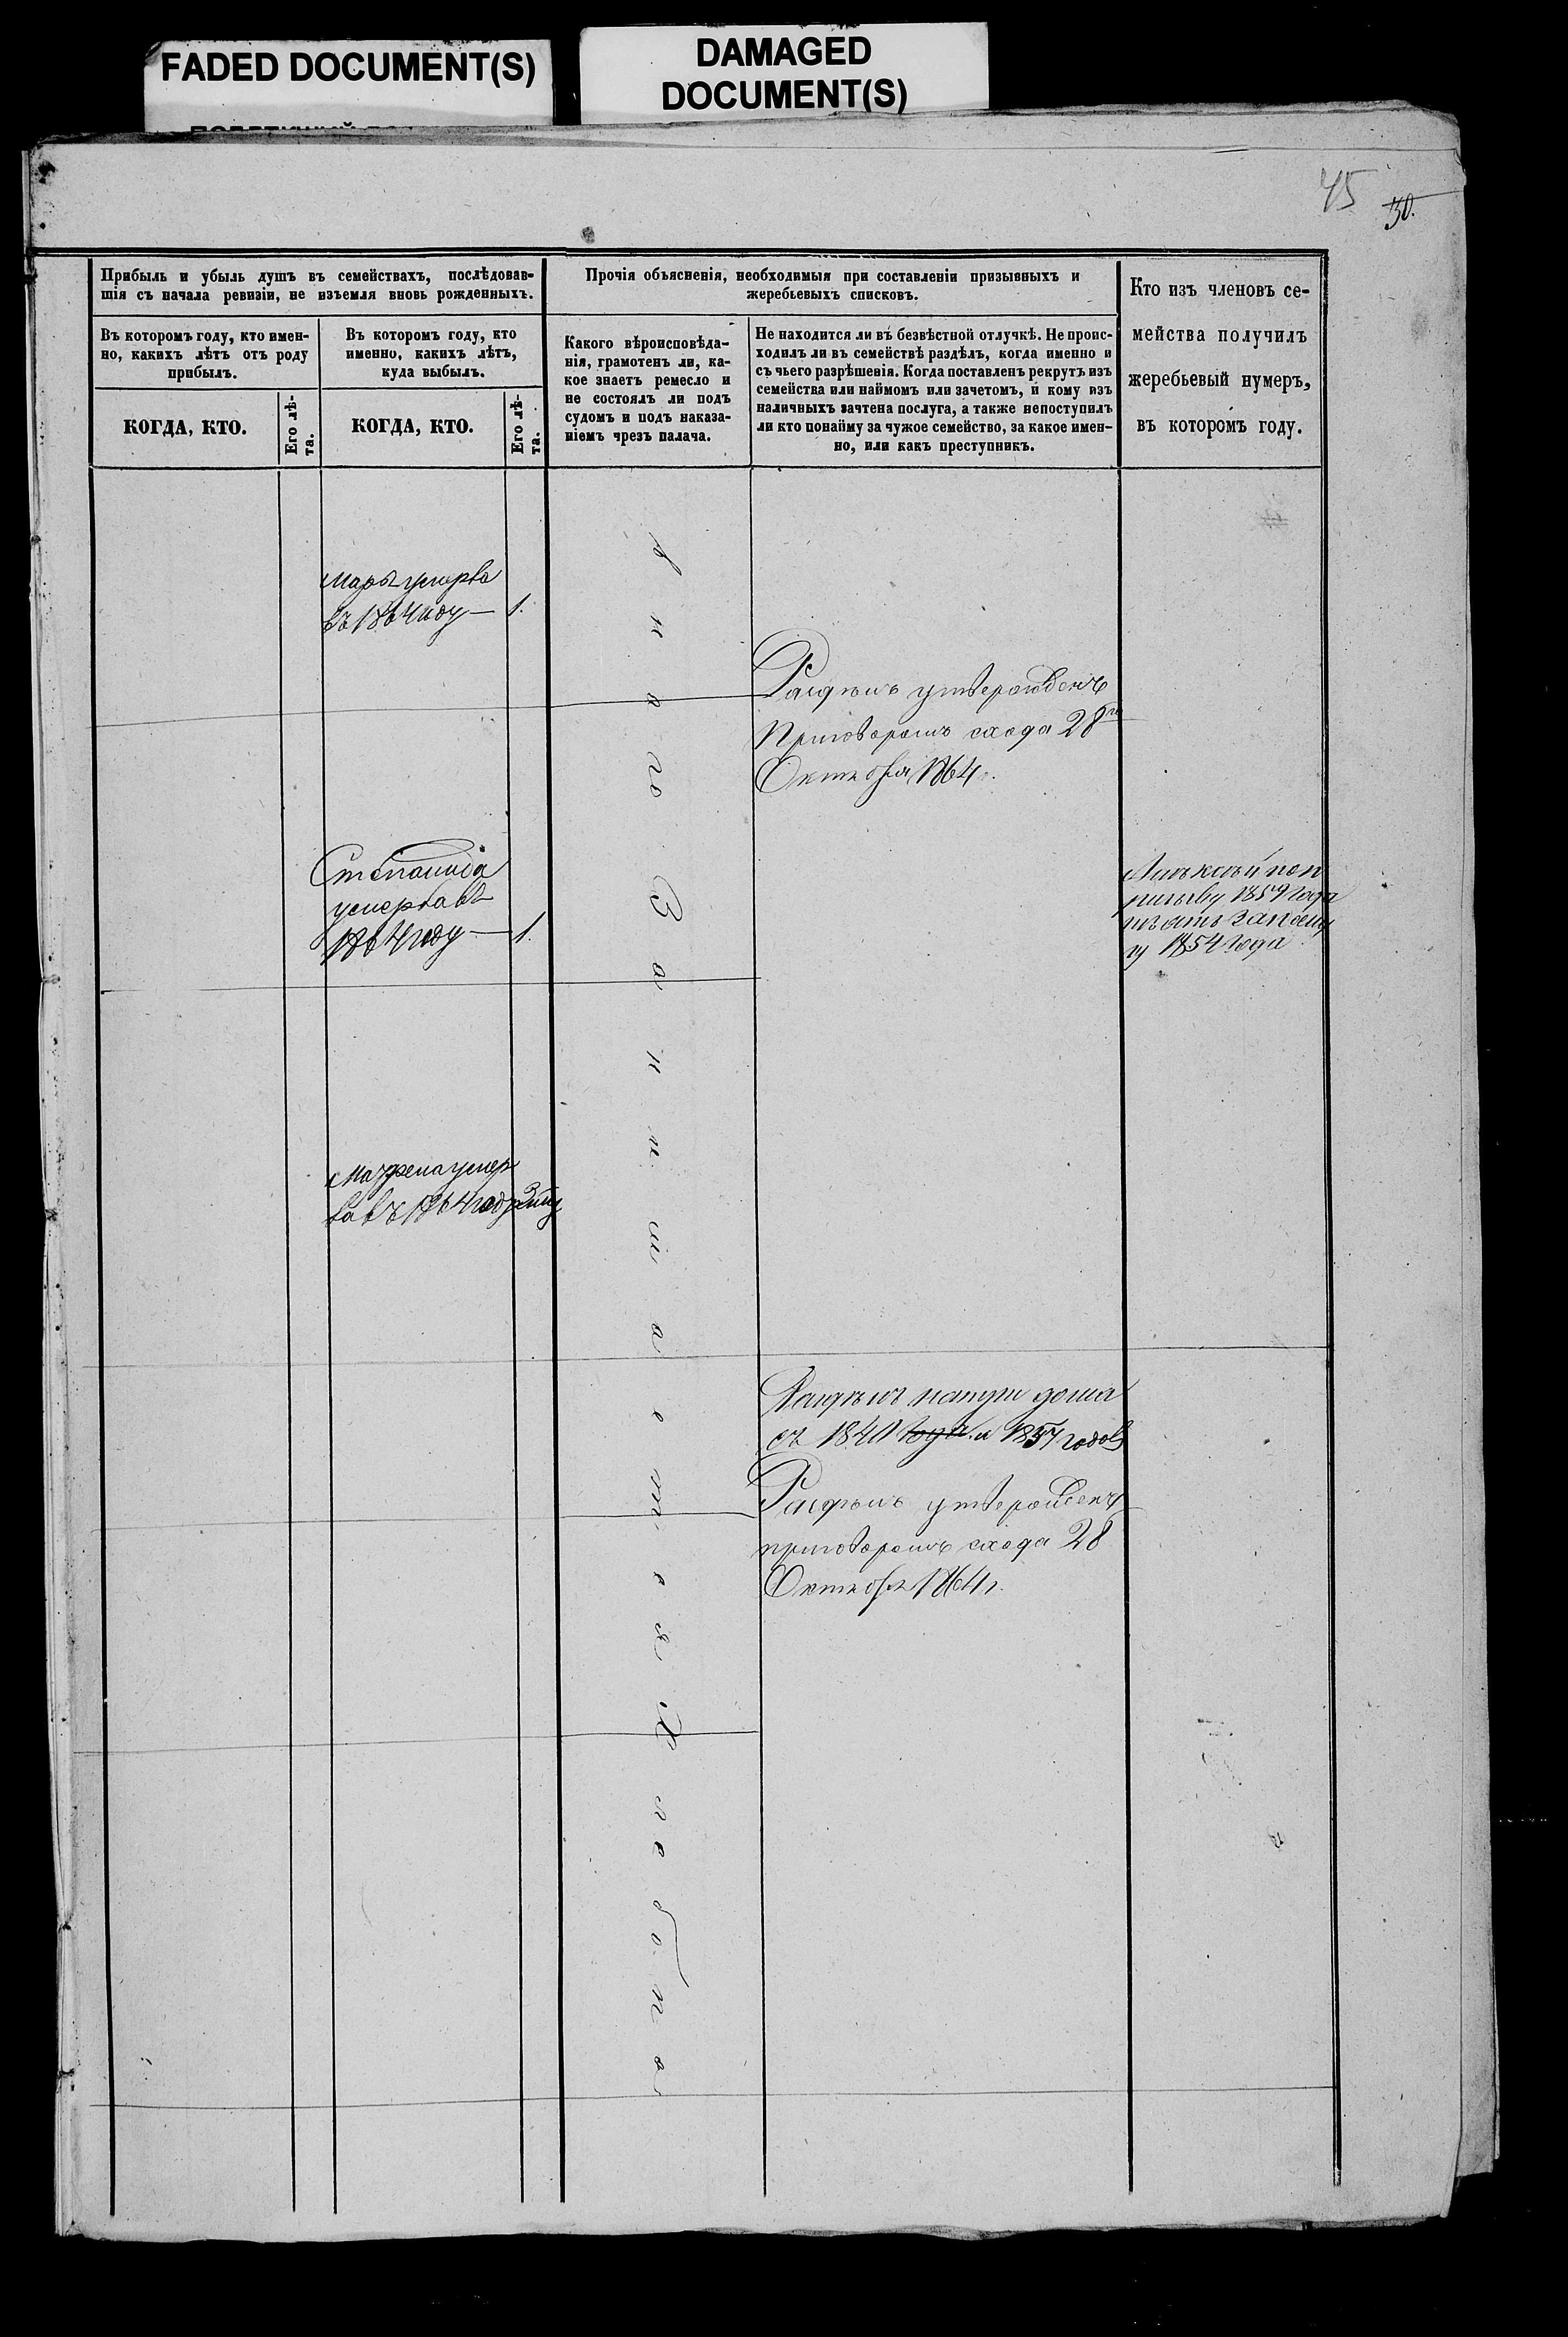 FADED DOCUMENT(S)
DAMAGED
DOCUMENT(S)
45
30.
Прибыль и убыль душъ въ семействахъ, послѣдовав-
шія съ начала ревизіи, не изъемля вновь рожденныхъ.
Въ которомъ году, кто имен-
но, какихъ лѣтъ отъ роду
прибылъ.
Въ которомъ году, кто
именно, какихъ лѣтъ,
куда выбылъ.
КОГДА, КТО.
Его лѣ-
та.
КОГДА, КТО.
Его лѣ-
та.
Прочія объясненія, необходимыя при составленіи призывныхъ и
жеребьевыхъ списковъ.
Какого вѣроисповѣда-
нія, грамотенъ ли, ка-
кое знаетъ ремесло и
не состоялъ ли подъ
судомъ и подъ наказа-
ніемъ чрезъ палача.
Не находится ли въ безвѣстной отлучкѣ. Не проис-
ходилъ ли въ семействѣ раздѣлъ, когда именно и
съ чьего разрѣшенія. Когда поставленъ рекрутъ изъ
семейства или наймомъ или зачетомъ, и кому изъ
наличныхъ зачтена послуга, а также непоступилъ
ли кто понайму за чужое семейство, за какое имен-
но, или какъ преступникъ.
Кто изъ членовъ се-
мейства получилъ
жеребьевый нумеръ,
въ которомъ году.
умерла
въ 1864 году — 1.
Раздѣлъ утвержденъ
Приговоромъ схода 28го
Октября 1864 г.
Степанида
умерла въ
1864 году — 1.
1859 года
1854 года
умер
ла въ 1864 году
Раздѣлъ натури дома
съ 1840 года и 1857 годов
Раздѣлъ утвержденъ
приговоромъ схода 28
Октября 1864 г.